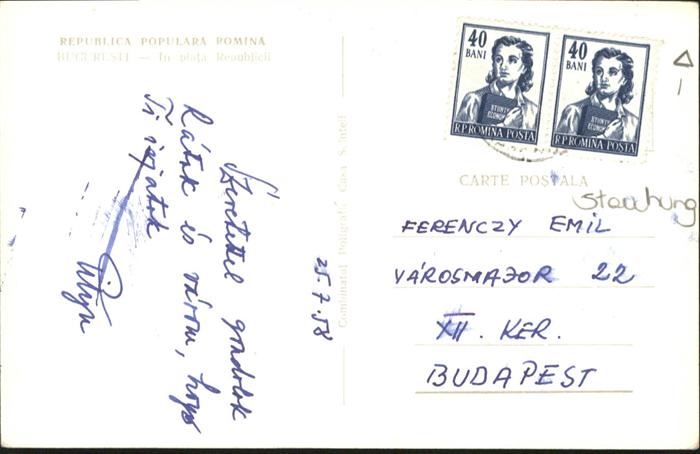 REPUBLICA POPULARA ROMINA
BUCUREȘTI — In piața Republicii
Szeretettel gondolok
Rátok és várom, hogy
Ti irjatok
25.7.58
Combinatul Poligrafic Casa Scînteii
40
BANI
STIINTE
ECONOM
R.P.ROMINA POSTA
40
BANI
STIINTE
ECONOM
R.P.ROMINA POSTA
CARTE POȘTALA
FERENCZY EMIL
VÁROSMAJOR 22
XII. KER.
BUDAPEST